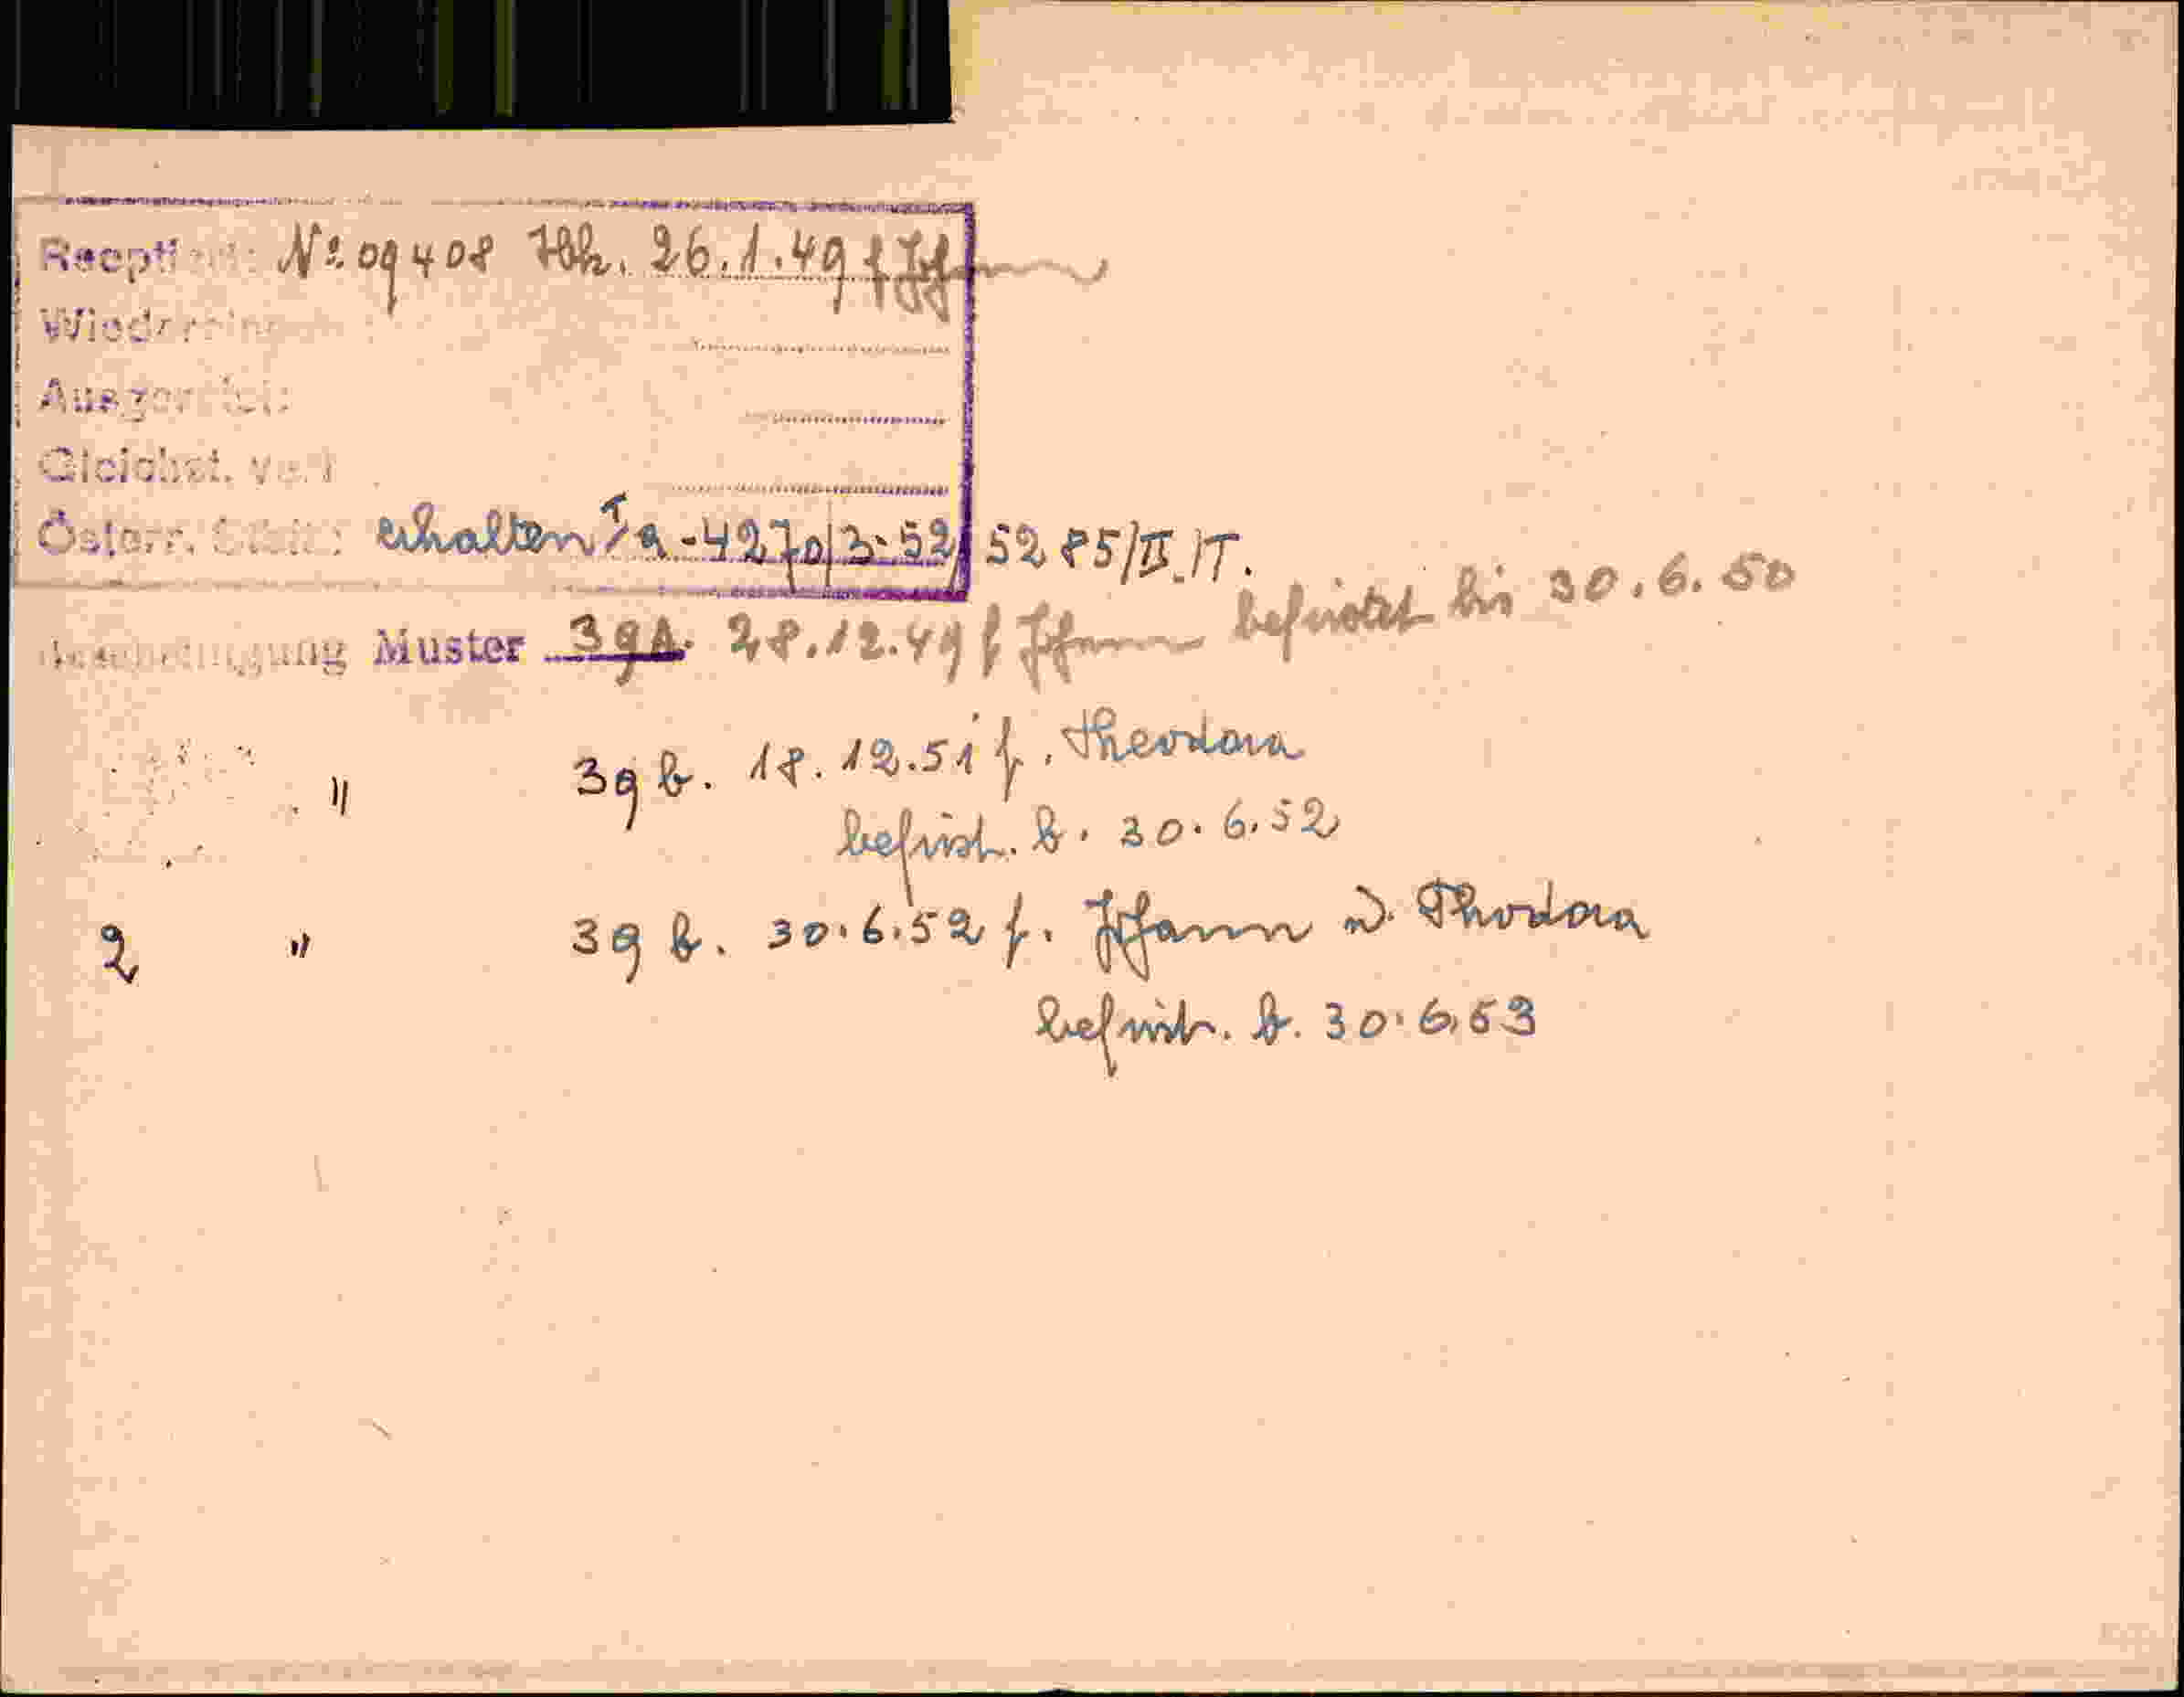 Reoptiert: No 09408 Hbk. 26.1.49 f Johann
Ausgereist:
Gleichst. verl
Österr. Stait: erhalten Ia-4270/3-52, 5285/II.IT.
Bescheinigung Muster 39A. 28.12.49 f Johann befristet bis 30.6.50
" 39 b. 18.12.51 f. Theodora
befrist. b. 30.6.52
2 " 39 b. 30.6.52 f. Johann u. Thodora
befrist. b. 30.6.53